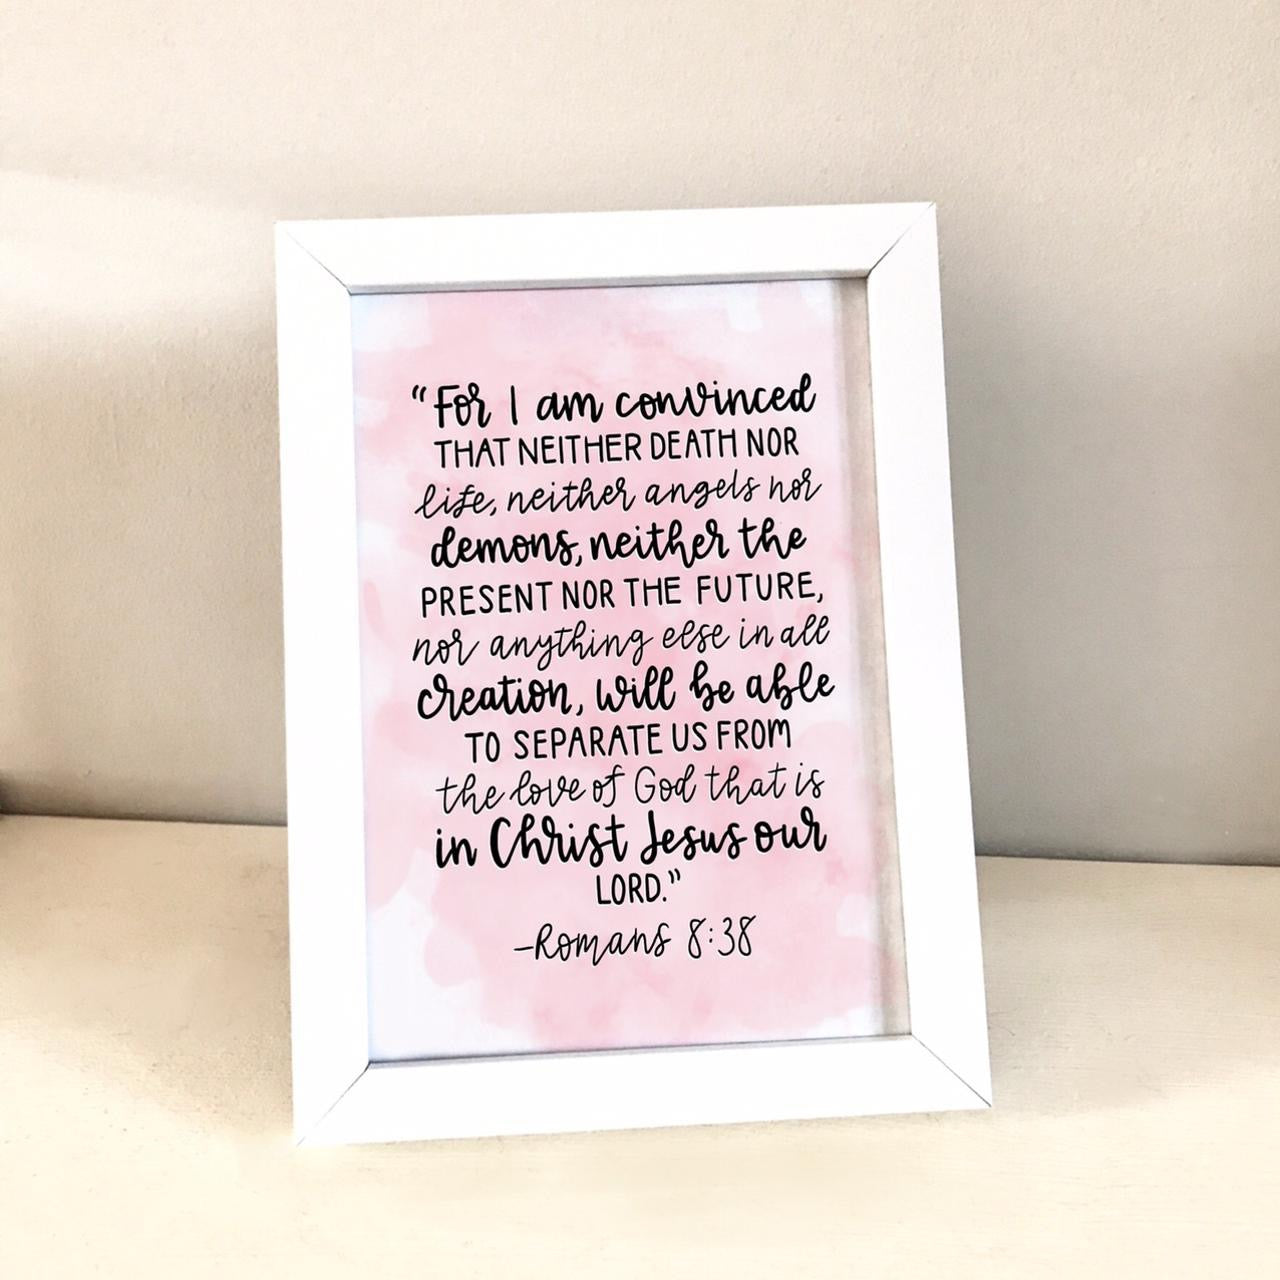 “For I am convinced
THAT NEITHER DEATH NOR
life, neither angels nor
demons, neither the
PRESENT NOR THE FUTURE,
nor anything else in all
creation, will be able
TO SEPARATE US FROM
the love of God that is
in Christ Jesus our
LORD.”
–Romans 8:38